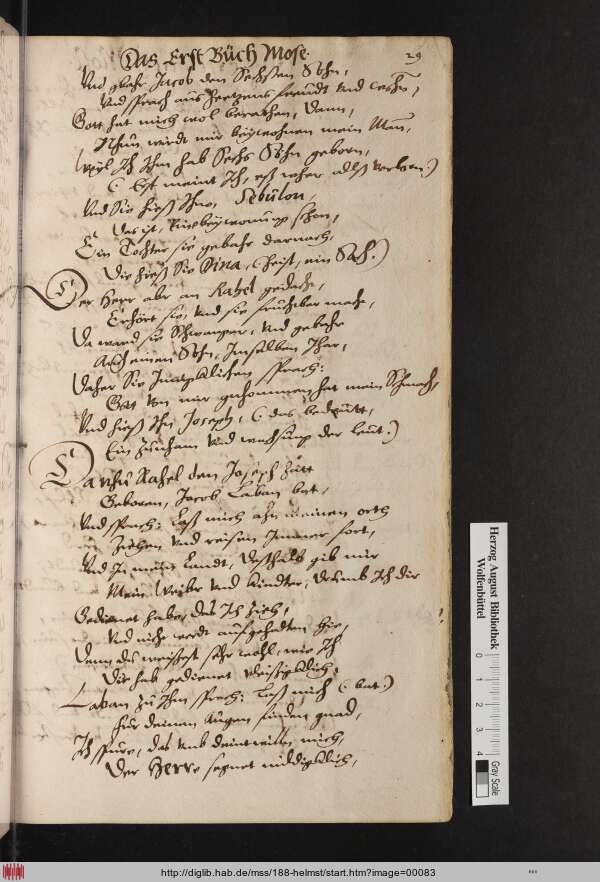 Das Erst Buch Mose.
29
Und gebahr Jacob den Sechsten Sohn,
Und sprach aus Hertzens freudt und
Gott hat mich wol berathen, Dann,
Nhun wirdt mir beywohnen mein Man,
Weyl Ich Ihm hab Sechs Söhn geborn,
meint Ich,
Und Sie hieß Ihn, Sebulon,
Das ist, beywonung schon,
Ein Tochter sie gebahr darnach,
Die hieß Sie Dina, (heist, ein Sach.)
Der Herr aber an Rahel gedacht,
Erhört sie, und sie fruchtbar macht,
Da ward sie Schwanger, und gebahr
Auch einen Sohn, Inselben Jhar,
Daher Sie sprach:
Gott von mir genhommen hat mein Schmach,
Und hieß Ihn Joseph, (das bedeutt,
Ein zunham und wachsung der leut.)
Da nhu Rahel den Joseph hatt
Geboren, Jacob Laban bat,
Und sprach: Laß mich ahn meinen orth
Ziehen und reisen Immer fort,
Und In mein Landt, Deshalb gib mir
Mein Weiber und Kinder, drumb Ich dir
Gedienet habe, das Ich zieh,
Und nicht werdt aufgehalten hie,
Denn du weissest sehr wohl, wie Ich
Dir hab gedienet vleissigklich,
Laban zu Ihm sprach: Laß mich (bat.)
Fur deinen Augen finden gnad,
Ich spure, das umb deint willen mich,
Der Herre segnet mildigklich,
Herzog August Bibliothek
Wolfenbüttel
0 1 2 3 4
Gray Scale
http://diglib.hab.de/mss/188-helmst/start.htm?image=00083